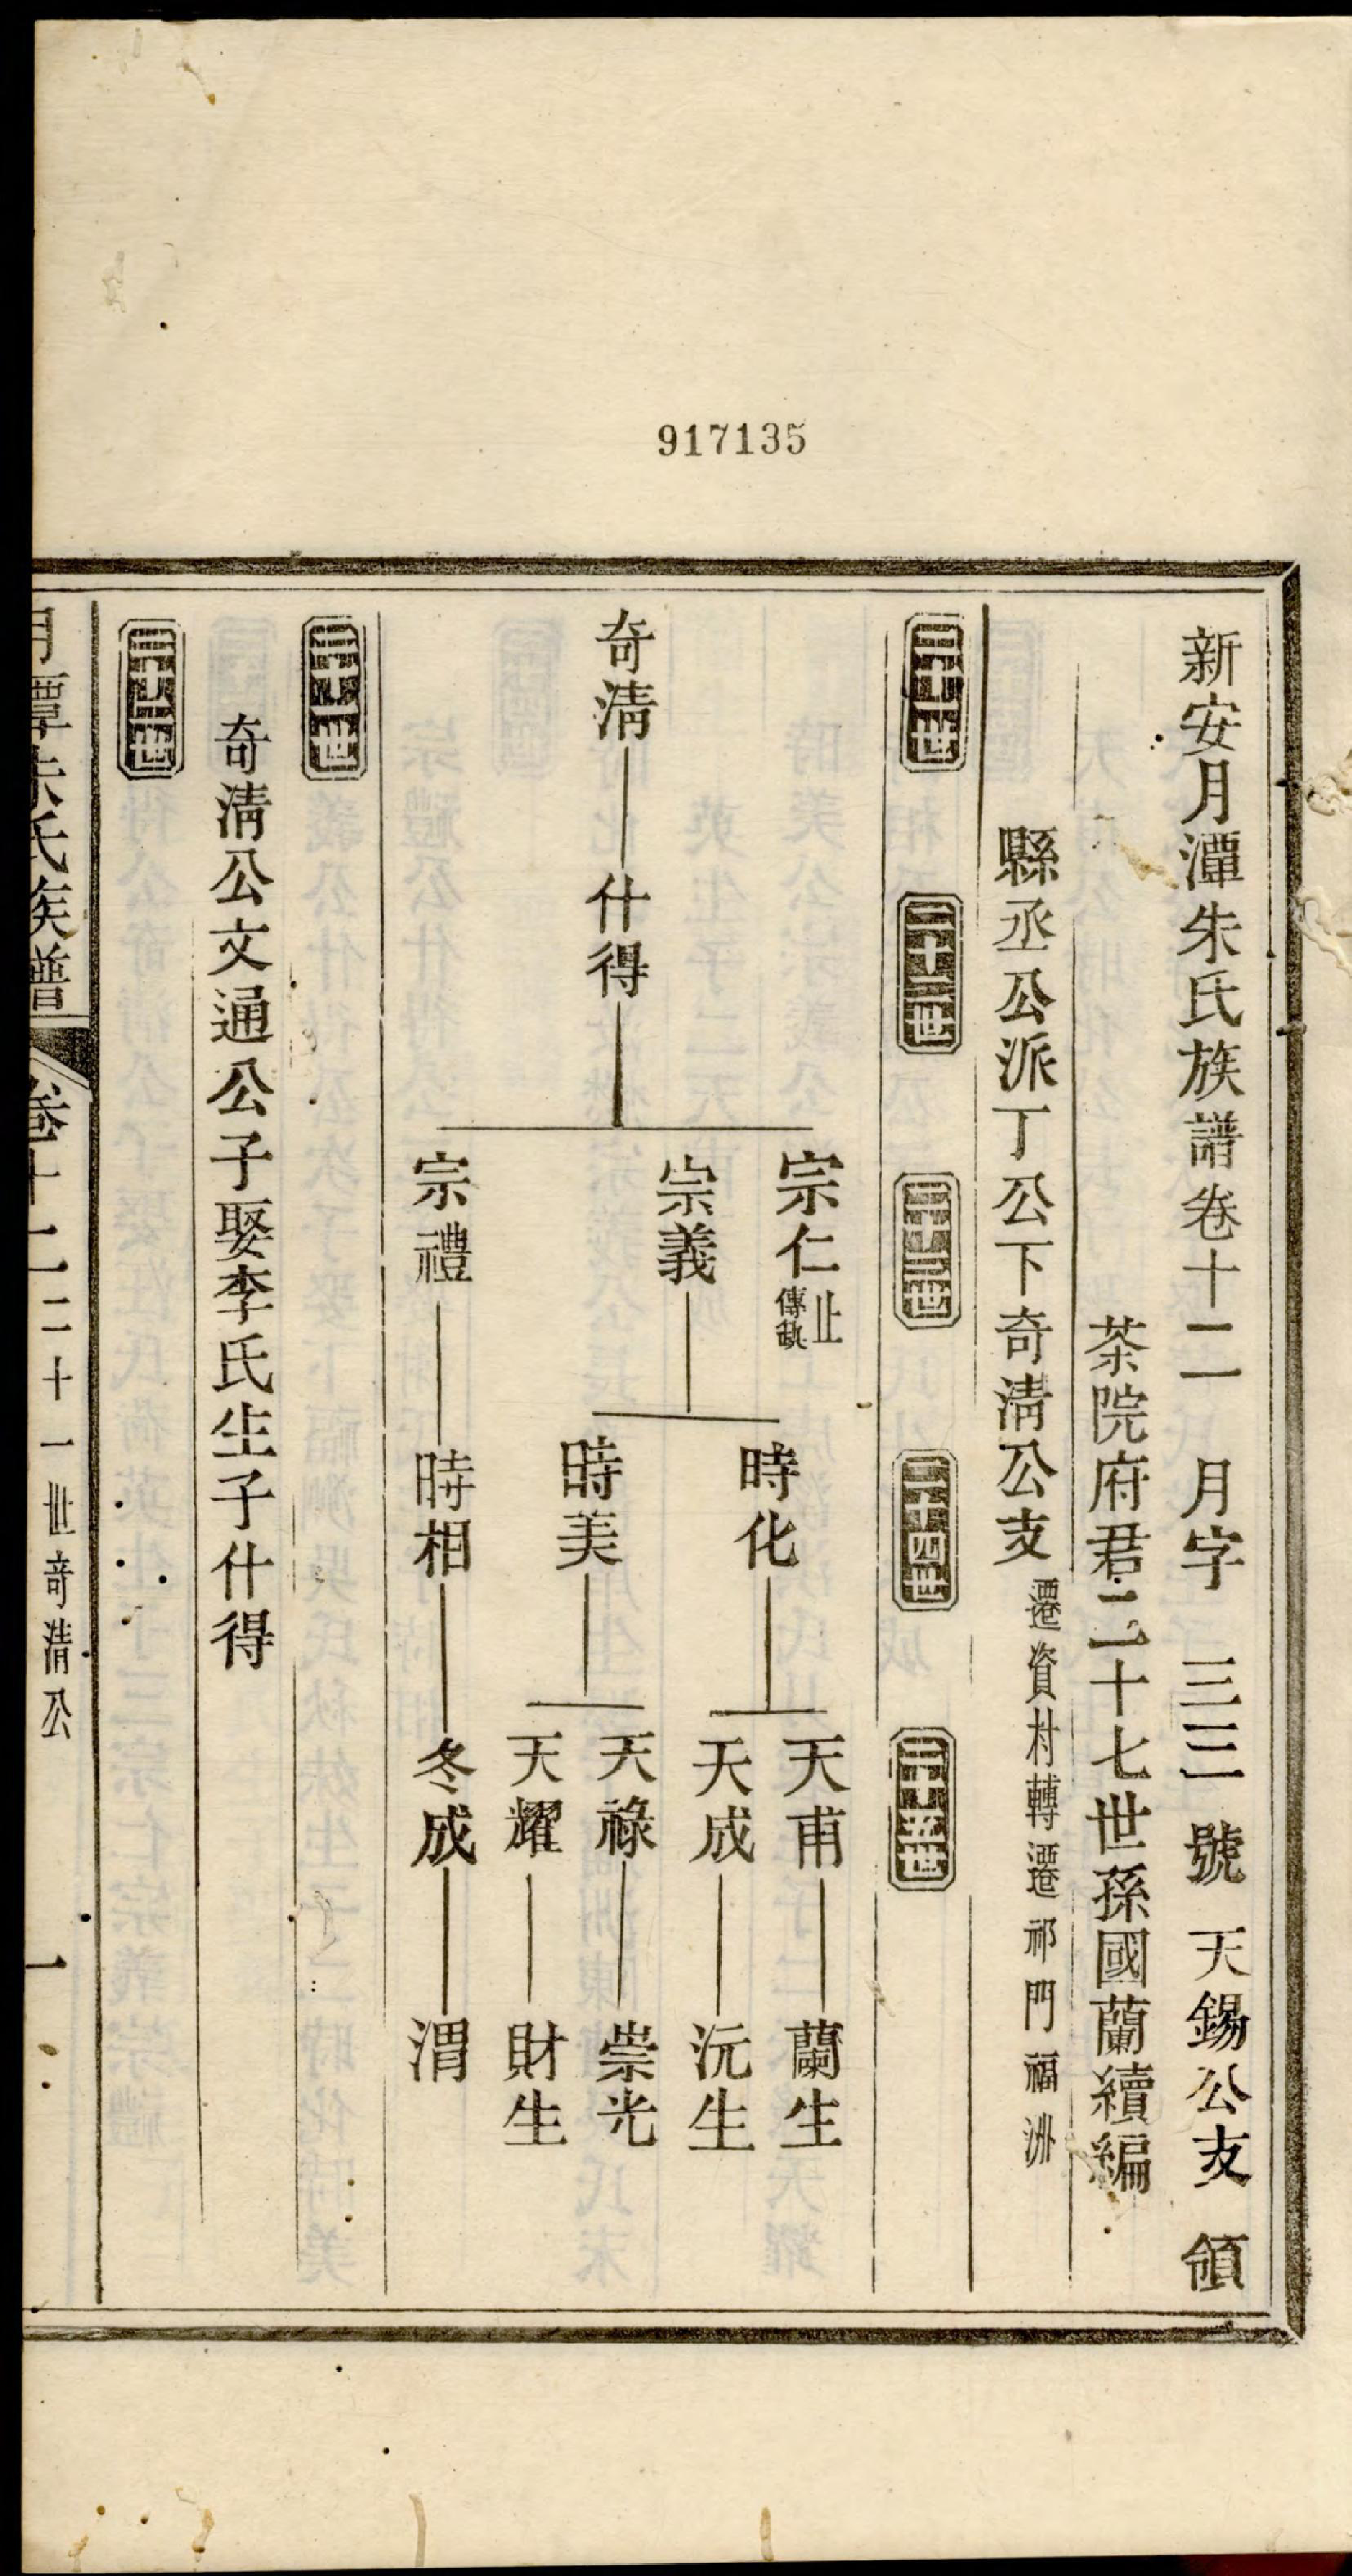 917135
新安月潭朱氏族譜卷十二 月字 三三 號 天錫公支 領
茶院府君二十七世孫國蘭續編
縣丞公派丁公下奇清公支 遷資村轉遷祁門福洲
二十一世 二十二世 二十三世 二十四世 二十五世
奇清 什得
宗仁 止 傳缺
宗義
宗禮
時化
時美
時相
天甫 蘭生
天成 沅生
天祿 崇光
天耀 財生
冬成 渭
二十一世
奇清公文通公子娶李氏生子什得
二十二世
月潭朱氏族譜 卷十二 二十一世奇清公 一